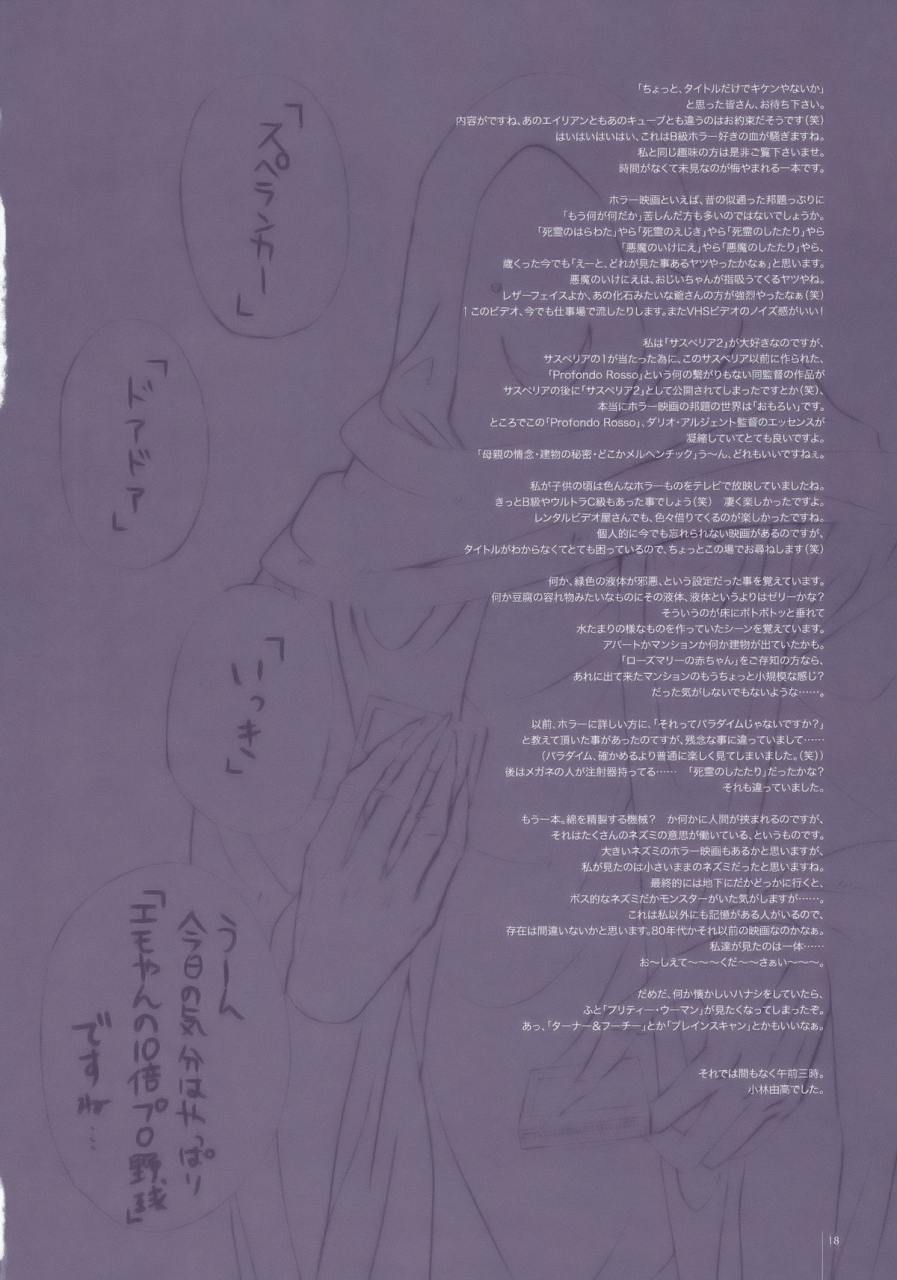 「ちょっと、タイトルだけでキケンやないか」
と思った皆さん、お待ち下さい。
内容がですね、あのエイリアンともあのキューブとも違うのはお約束だそうです(笑)
はいはいはいはい、これはB級ホラー好きの血が騒ぎますね。
私と同じ趣味の方は是非ご覧下さいませ。
時間がなくて未見なのが悔やまれる一本です。
ホラー映画といえば、昔の似通った邦題っぷりに
「もう何が何だか」苦しんだ方も多いのではないでしょうか。
「死霊のはらわた」やら「死霊のえじき」やら「死霊のしたたり」やら
「悪魔のいけにえ」やら「悪魔のしたたり」やら、
歳くった今でも「えーと、どれが見た事あるヤツやったかなぁ」と思います。
悪魔のいけにえは、おじいちゃんが指吸うてくるヤツやね。
レザーフェイスよか、あの化石みたいな爺さんの方が強烈やったなぁ(笑)
↑このビデオ、今でも仕事場で流したりします。またVHSビデオのノイズ感がいい!
私は「サスペリア2」が大好きなのですが、
サスペリアの1が当たった為に、このサスペリア以前に作られた、
「Profondo Rosso」という何の繋がりもない同監督の作品が
サスペリアの後に「サスペリア2」として公開されてしまったですとか(笑)、
本当にホラー映画の邦題の世界は「おもろい」です。
ところでこの「Profondo Rosso」、ダリオ・アルジェント監督のエッセンスが
凝縮していてとても良いですよ。
「母親の情念・建物の秘密・どこかメルヘンチック」う〜ん、どれもいいですねぇ。
私が子供の頃は色んなホラーものをテレビで放映していましたね。
きっとB級やウルトラC級もあった事でしょう(笑) 凄く楽しかったですよ。
レンタルビデオ屋さんでも、色々借りてくるのが楽しかったですね。
個人的に今でも忘れられない映画があるのですが、
タイトルがわからなくてとても困っているので、ちょっとこの場でお尋ねします(笑)
何か、緑色の液体が邪悪、という設定だった事を覚えています。
何か豆腐の容れ物みたいなものにその液体、液体というよりはゼリーかな?
そういうのが床にボトボトッと垂れて
水たまりの様なものを作っていたシーンを覚えています。
アパートかマンションか何か建物が出ていたかも。
「ローズマリーの赤ちゃん」をご存知の方なら、
あれに出て来たマンションのもうちょっと小規模な感じ?
だった気がしないでもないような……。
以前、ホラーに詳しい方に、「それってパラダイムじゃないですか?」
と教えて頂いた事があったのですが、残念な事に違っていまして……
(パラダイム、確かめるより普通に楽しく見てしまいました。(笑))
後はメガネの人が注射器持ってる…… 「死霊のしたたり」だったかな?
それも違っていました。
もう一本。綿を精製する機械? か何かに人間が挟まれるのですが、
それはたくさんのネズミの意思が働いている、というものです。
大きいネズミのホラー映画もあるかと思いますが、
私が見たのは小さいままのネズミだったと思いますね。
最終的には地下にだかどっかに行くと、
ボス的なネズミだかモンスターがいた気がしますが……。
これは私以外にも記憶がある人がいるので、
存在は間違いないかと思います。80年代かそれ以前の映画なのかなぁ。
私達が見たのは一体……
お〜しえて〜〜〜くだ〜〜さぁい〜〜〜。
だめだ、何か懐かしいハナシをしていたら、
ふと「プリティー・ウーマン」が見たくなってしまったぞ。
あっ、「ターナー&フーチー」とか「ブレインスキャン」とかもいいなぁ。
それでは間もなく午前三時。
小林由高でした。
「スペランカー」
「ドアドア」
「いっき」
うーん
今日の気分はやっぱり
「エモやんの10倍プロ野球」
ですね…
18